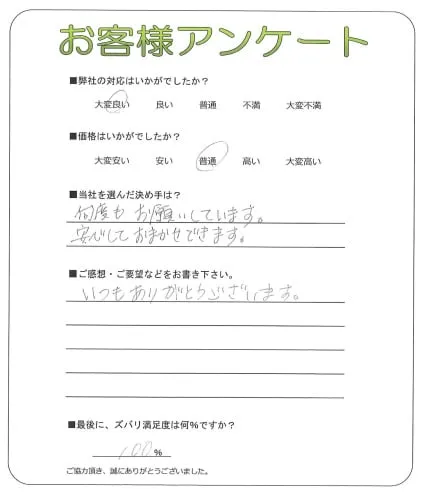 お客様アンケート
■弊社の対応はいかがでしたか？
大変良い 良い 普通 不満 大変不満
■価格はいかがでしたか？
大変安い 安い 普通 高い 大変高い
■当社を選んだ決め手は？
何度もお願いしています。
安心しておまかせできます。
■ご感想・ご要望などをお書き下さい。
いつもありがとうございます。
■最後に、ズバリ満足度は何％ですか？
100％
ご協力頂き、誠にありがとうございました。